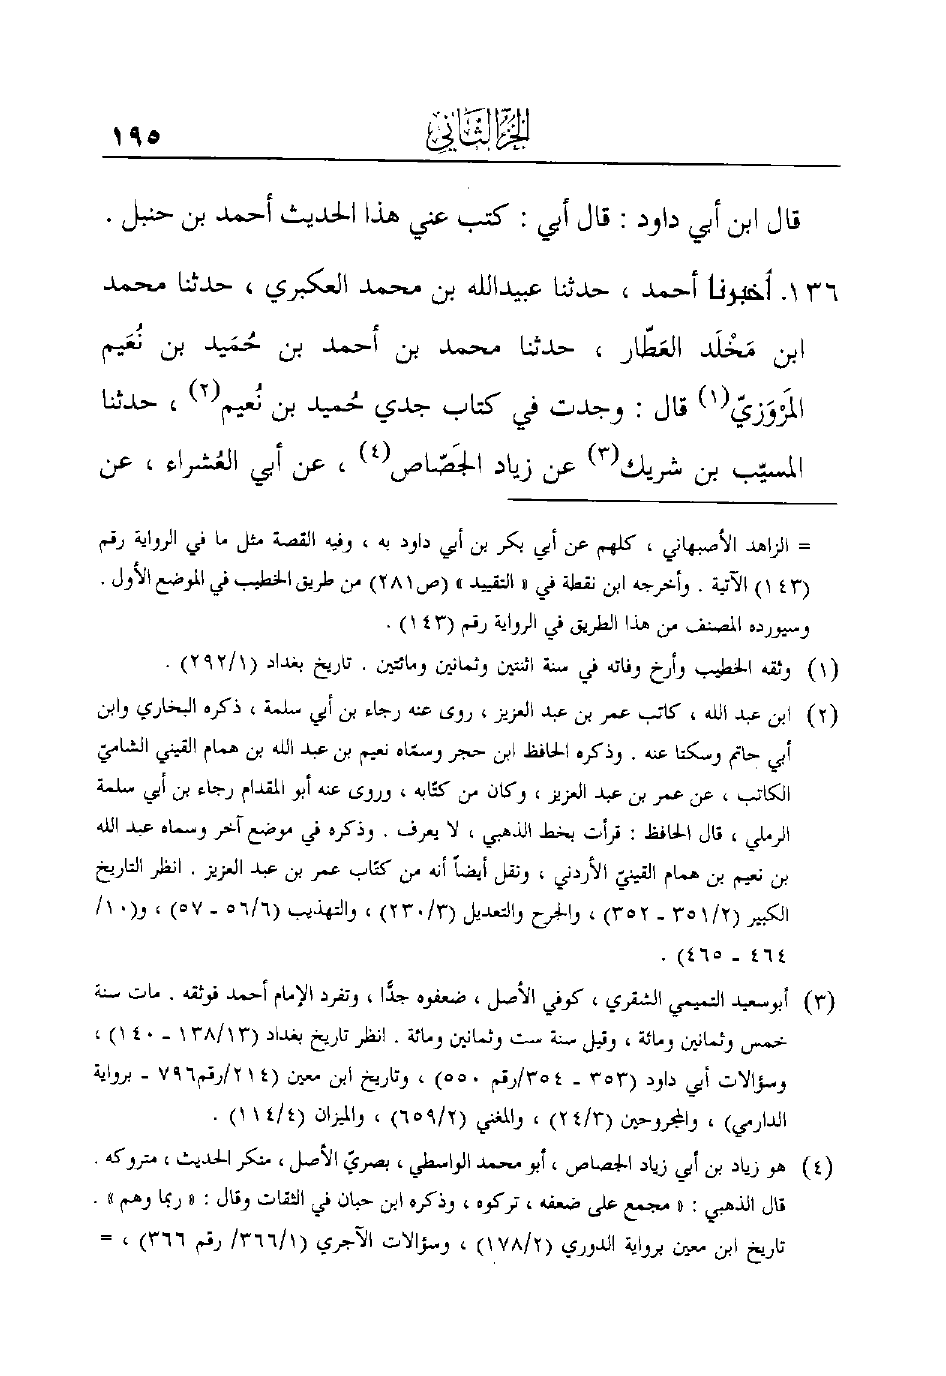 الجزء الثاني ١٩٥
قال ابن أبي داود : قال أبي : كتب عني هذا الحديث أحمد بن حنبل .
١٣٦. أخبرنا أحمد ، حدثنا عبيدالله بن محمد العكبري ، حدثنا محمد
ابن مَخْلَد العَطَّار ، حدثنا محمد بن أحمد بن حُمَيد بن نُعَيم
المَرْوَزيّ(١) قال : وجدت في كتاب جدي حُميد بن نُعيم(٢) ، حدثنا
المسيّب بن شريك(٣) عن زياد الجَصّاص(٤) ، عن أبي العُشراء ، عن
= الزاهد الأصبهاني ، كلهم عن أبي بكر بن أبي داود به ، وفيه القصة مثل ما في الرواية رقم
(١٤٣) الآتية . وأخرجه ابن نقطة في « التقييد » (ص٢٨١) من طريق الخطيب في الموضع الأول .
وسيورده المصنف من هذا الطريق في الرواية رقم (١٤٣) .
(١) وثقه الخطيب وأرخ وفاته في سنة اثنتين وثمانين ومائتين . تاريخ بغداد (٢٩٢/١) .
(٢) ابن عبد الله ، كاتب عمر بن عبد العزيز ، روى عنه رجاء بن أبي سلمة ، ذكره البخاري وابن
أبي حاتم وسكتا عنه . وذكره الحافظ ابن حجر وسمّاه نعيم بن عبد الله بن همام القيني الشاميّ
الكاتب ، عن عمر بن عبد العزيز ، وكان من كتّابه ، وروى عنه أبو المقدام رجاء بن أبي سلمة
الرملي ، قال الحافظ : قرأت بخط الذهبي ، لا يعرف . وذكره في موضع آخر وسماه عبد الله
بن نعيم بن همام القينيّ الأردني ، ونقل أيضاً أنه من كتّاب عمر بن عبد العزيز . انظر التاريخ
الكبير (٣٥١/٢ - ٣٥٢) ، والجرح والتعديل (٢٣٠/٣) ، والتهذيب (٥٦/٦ - ٥٧) ، و(١٠/
٤٦٤ - ٤٦٥) .
(٣) أبوسعيد التميمي الشقري ، كوفي الأصل ، ضعفوه جدًّا ، وتفرد الإمام أحمد فوثقه . مات سنة
خمس وثمانين ومائة ، وقيل سنة ست وثمانين ومائة . انظر تاريخ بغداد (١٣٨/١٣ - ١٤٠) ،
وسؤالات أبي داود (٣٥٣ - ٣٥٤/رقم ٥٥٠) ، وتاريخ ابن معين (٢١٤/رقم٧٩٦ - برواية
الدارمي) ، والمجروحين (٢٤/٣) ، والمغني (٦٥٩/٢) ، والميزان (١١٤/٤) .
(٤) هو زياد بن أبي زياد الجصاص ، أبو محمد الواسطي ، بصريّ الأصل ، منكر الحديث ، متروكه .
قال الذهبي : « مجمع على ضعفه ، تركوه ، وذكره ابن حبان في الثقات وقال : « ربما وهم » .
تاريخ ابن معين برواية الدوري (١٧٨/٢) ، وسؤالات الآجري (٣٦٦/١/ رقم ٣٦٦) ، =